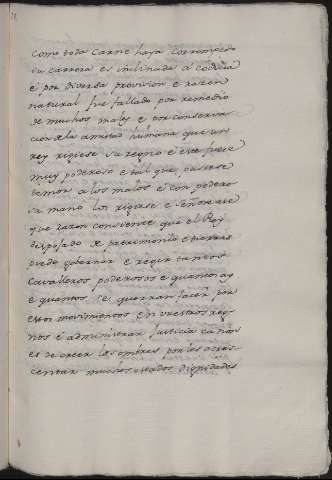 como toda carne haya corrompido
su carrera es inclinada a codicia
e por diversa provision e razon
natural fue fallado por remedio
de muchos males e por conserva
cion de la amistad humana que un
rey rigiese su regno e este fuese
muy poderoso e tal que pusiese
temor a los malos e con podero
sa mano los rigiese e señorease
que razon consiente que el Rey
despojado de patrimonio e tierras
puede gobernar e regir tantos
cavalleros poderosos e quantos ay
e quantos se querran facer por
estos movimientos en vuestros reg
nos e administrar justicia ca non
es de creer los ombres por les acres
centar muchos estados dignidades